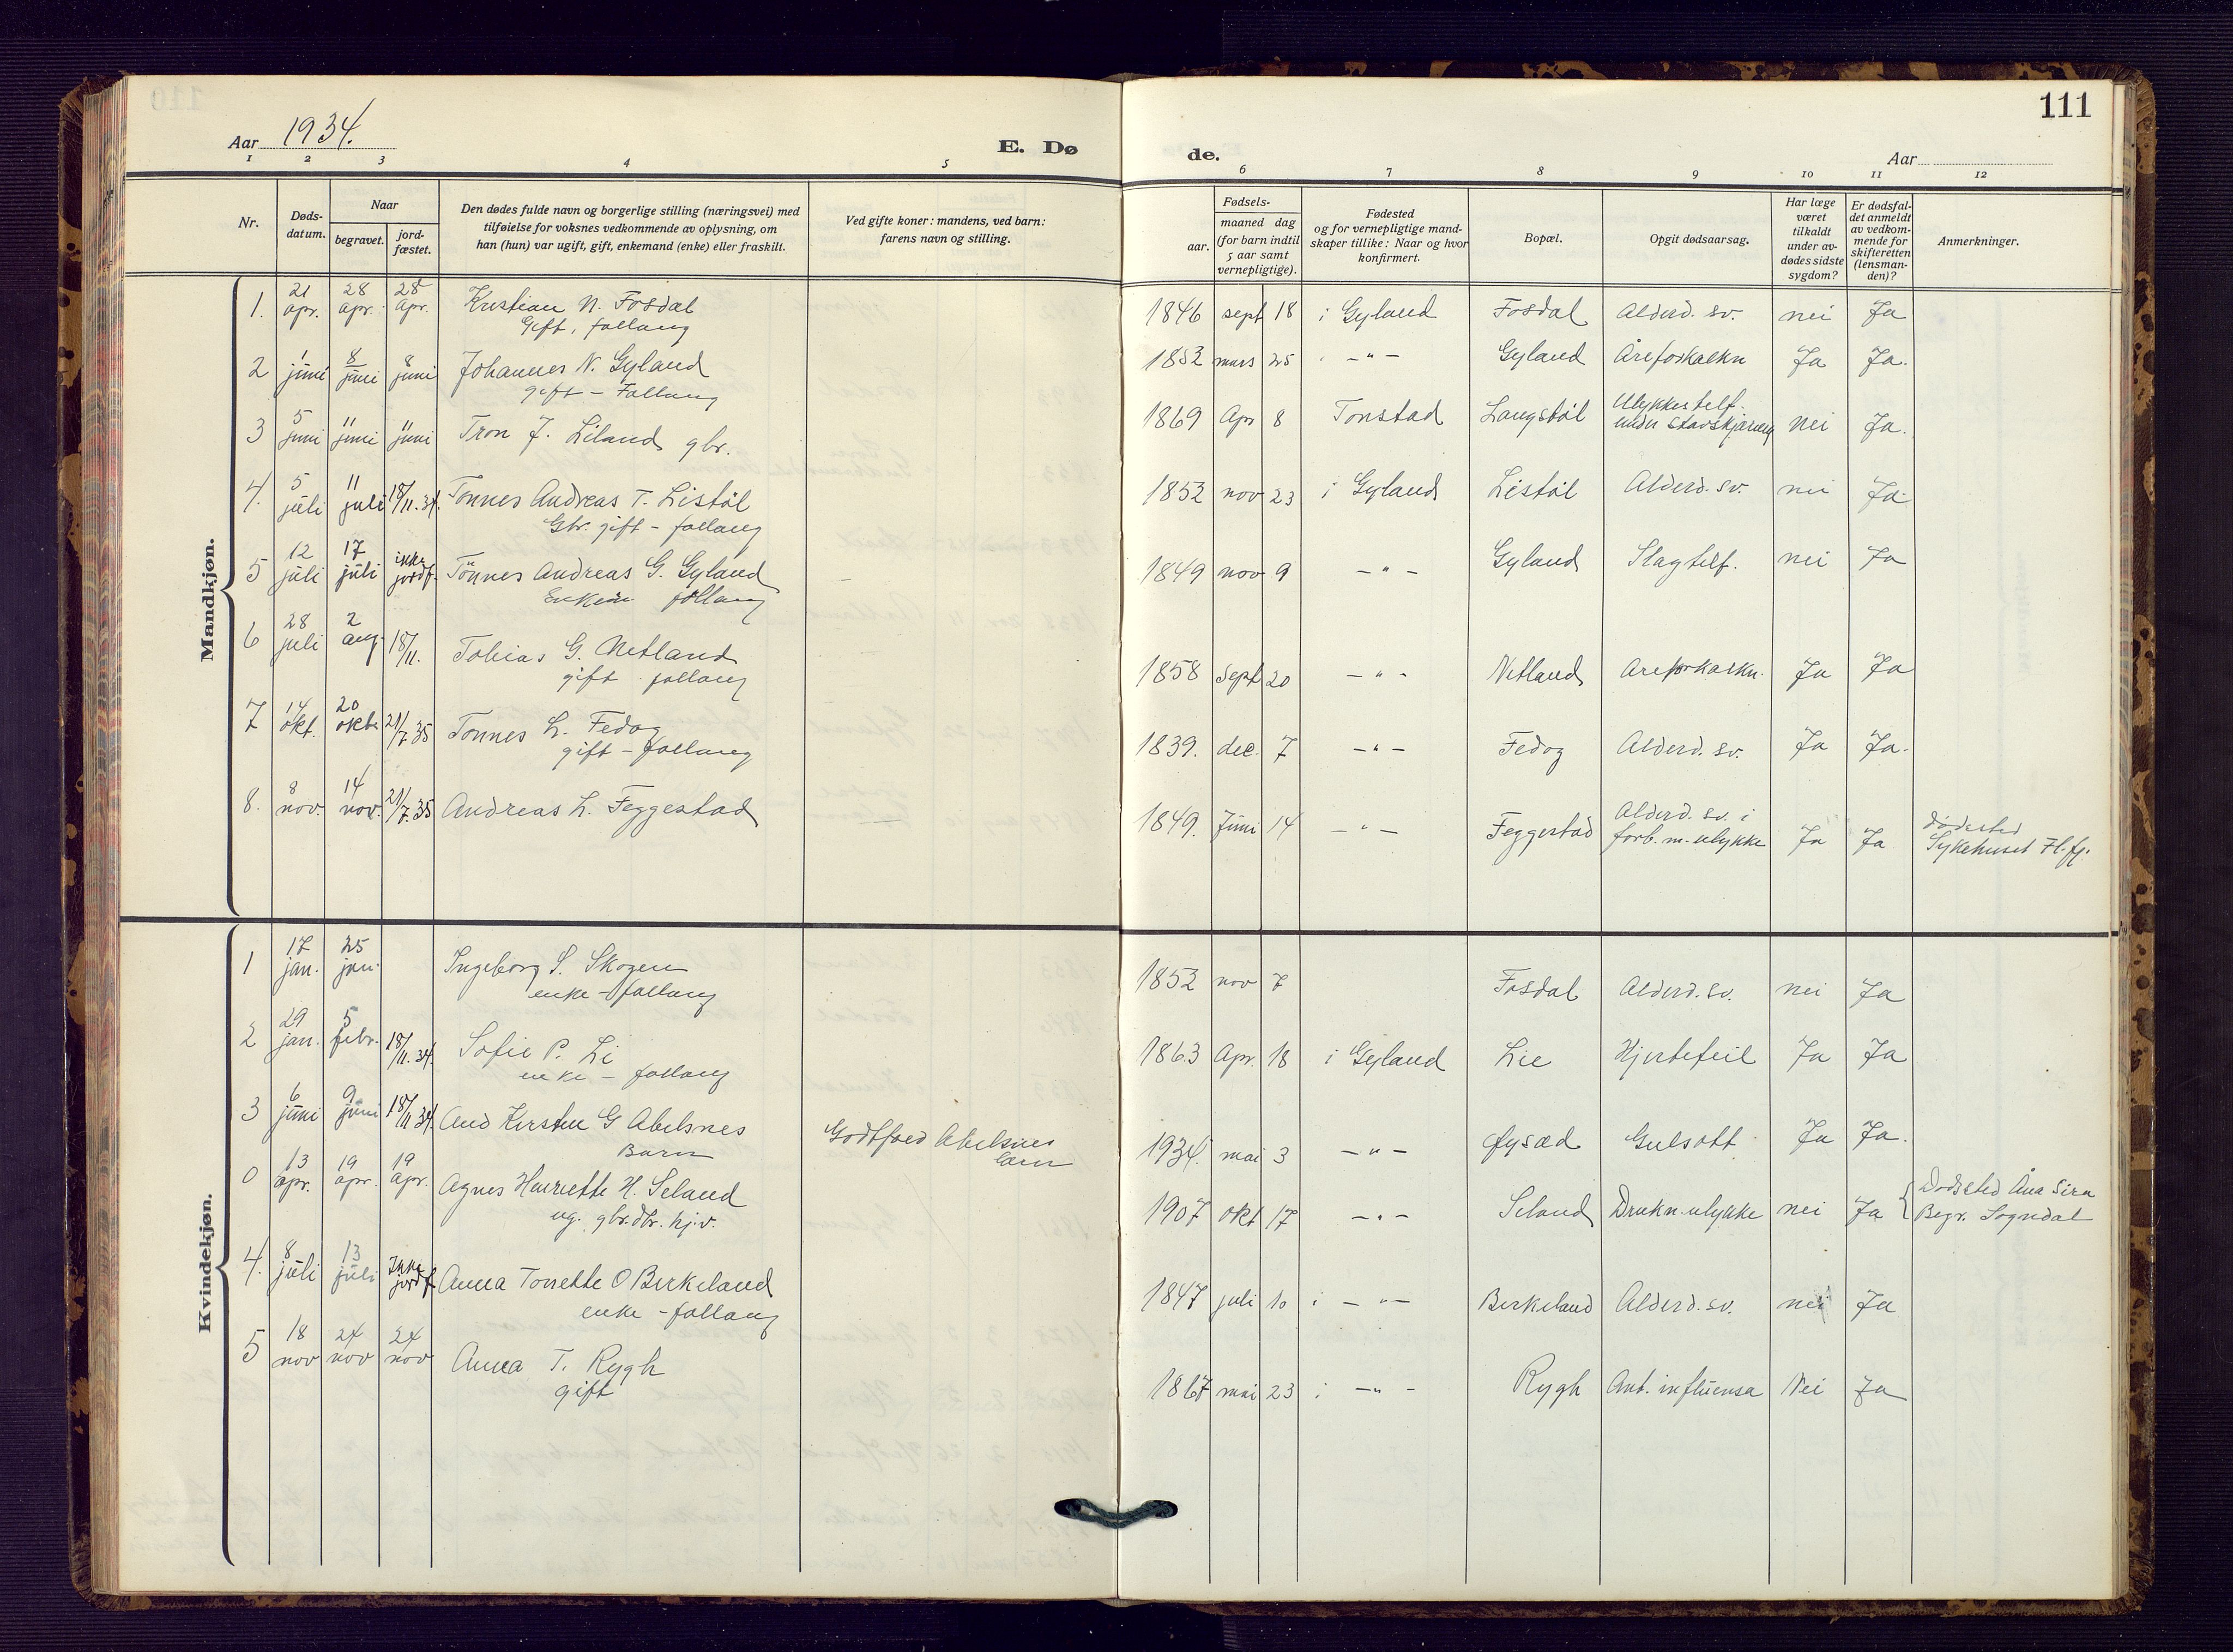 111
Aar 1934.
E. Dø
de.
Aar
1 2 3 4 5 6 7 8 9 10 11 12
Nr.
Døds-
datum.
Naar
begravet.
jord-
fæstet.
Den dødes fulde navn og borgerlige stilling (næringsvei) med
tilføielse for voksnes vedkommende av oplysning, om
han (hun) var ugift, gift, enkemand (enke) eller fraskilt.
Ved gifte koner: mandens, ved barn:
farens navn og stilling.
Fødsels-
aar.
maaned dag
(for barn indtil
5 aar samt
vernepligtige).
Fødested
og for vernepligtige mand-
skaper tillike: Naar og hvor
konfirmert.
Bopæl.
Opgit dødsaarsag.
Har læge
været
tilkaldt
under av-
dødes sidste
sygdom?
Er dødsfal-
det anmeldt
av vedkom-
mende for
skifteretten
(lensman-
den)?
Anmerkninger.
Mandkjøn.
1. 21 apr. 28 apr. 28 apr. Kristian N. Fosdal 1846 sept 18 i Gyland Fosdal Alderd. sv. nei Ja
Gift, follaug
2 1 juni 8 juni 8 juni Johannes N. Gyland 1852 mars 25 - " - Gyland Åreforkalkn Ja Ja.
gift - Follaug
3 5 juni 11 juni 11 juni Tron J. Liland gbr. 1869 Apr 8 Tonstad Langstøl Ulykkestilf. under stavskjæring nei Ja.
4. 5 juli 11 juli 18/11.34. Tønnes Andreas T. Listøl 1852 nov 23 i Gyland Listøl Alderd. sv. nei Ja.
Gbr. gift - follaug
5 12 juli 17 juli ikke jordf. Tönnes Andreas G. Gyland 1849 nov 9 - " - Gyland Slagtilf. nei Ja
Enkem follaug
6 28 juli 2 aug. 18/11. Tobias G. Netland 1858 sept 20 - " - Netland Areforkalkn. Ja Ja
gift follaug
7 14 okt. 20 okt. 21/7.35 Tonnes L. Fedog 1839. dec. 7 - " - Fedog Alderd. sv. Ja Ja.
gift - follaug
8. 8 nov. 14 nov. 21/7.35 Andreas L. Feggestad 1849. Juni 14 - " - Feggestad Alderd. sv. i forb. m. ulykke Ja Ja dødssted Sykehuset Fl.fj.
Kvindekjøn.
1 17 jan. 25 jan. Ingeborg S. Skogen 1852 nov 7 Fosdal Alderd. sv. nei Ja
enke - follaug
2 29 jan. 5 febr. 18/11.34. Sofie P. Li 1863 Apr. 18 i Gyland Lie Hjertefeil Ja Ja
enke - follaug
3 6 juni 9 juni 18/11 34. Aud Kirsten G Abelsnes Godtfred Abelsnes 1934. mai 3 - " - Gulsott Ja Ja.
Barn
0 13 apr. 19 apr. 19 apr. Agnes Henriette H. Seland 1907 okt 17 - " - Seland Drukn.ulykke nei Ja Dødssted Åna Sira
ug. gbr.dtr. hj.v. Begr. Sogndal
4. 8 juli 13 juli Ikke jordf Anna Tonette O Birkeland 1847 juli 10 i - " - Birkeland Alderd. sv. nei Ja
enke - follaug
5 18 nov 24 nov 24 nov Anna T. Rygh 1867 mai 23 i - " - Rygh Ant. influensa Nei Ja
gift